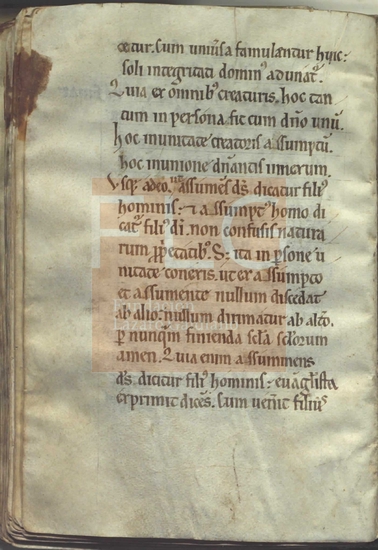 cetur. Cum uniu'sa famulantur huic:
soli integritati domin' adunat'.
Quia ex omnib' creaturis. hoc tan
tum in persona fit cum dño unū.
hoc in unitate creatoris assumptū.
hoc in unione dñantis unicum.
Usq; adeo. ut assumēs d̄s. dicatur fili'
hominis: & assumpt' homo di
cat' fili' dī. non confusis natura
rum p̄p̄etatib'. S; ita in p̄sone u
nitate conexis. ut ex assumpto
et assumente nullum discedat
ab alio: nullum dirimatur ab alt̄o.
p̄ nunq̄m finienda sc̄la sc̄lorum
amen. Quia enim assummens
d̄s. dicitur fili' hominis: euāglista
exprimit dicēs. Cum uen̄it filiu'